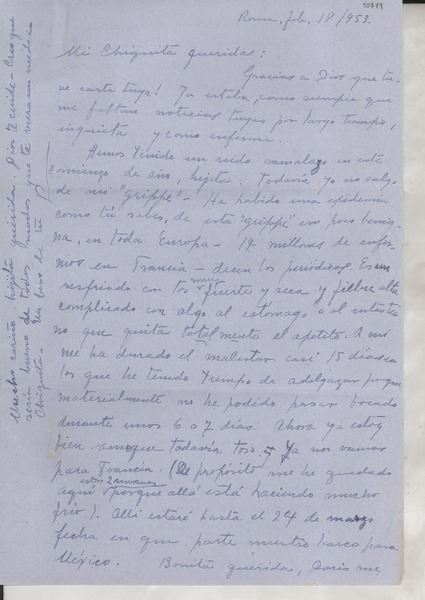 10799
Roma, feb. 18/953.
Mi Chiquita querida:
Gracias a Dios que tu-
ve carta tuya! Ya estaba, como siempre que
me faltan noticias tuyas por largo tiempo,
inquieta y como enferma.
Hemos tenido un rudo ramalazo en este
comienzo de año, hijita. Todavía yo no salgo
de mi "grippe" - Ha habido una epidemia
como tú sabes, de esta "grippe" un poco benig-
na, en toda Europa - 14 millones de enfer-
mos en Francia - dicen los periódicos. Es un
resfriado con tos muy fuerte y seca y fiebre alta
complicado con algo al estómago o al intesti
no que quita totalmente el apetito. A mí
me ha durado el malestar casi 15 días en
los que he tenido tiempo de adelgazar porque
materialmente no he podido pasar bocado
durante unos 6 o 7 días. Ahora ya estoy
bien aunque todavía toso. Ya nos vamos
para Francia. (De propósito me he quedado
aquí estas 2 semanas porque allá está haciendo mucho
frío). Allí estaré hasta el 24 de marzo
fecha en que parte nuestro barco para
México. Bonita querida, Doris me
Mucho cariño, hijita querida. Dios te cuide - Creo que
sería bueno de todos modos que te viera un médico
Chiquita - Un beso de tu